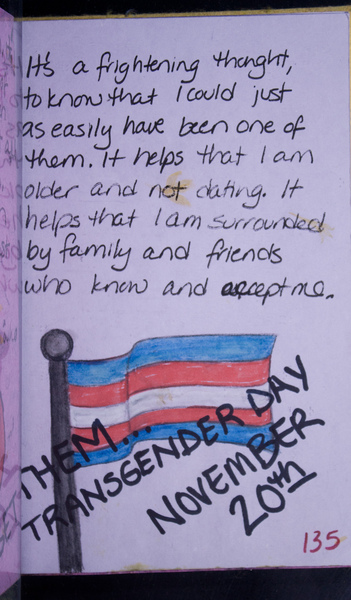 It's a frightening thought,
to know that I could just
as easily have been one of
them. It helps that I am
older and not dating. It
helps that I am surrounded
by family and friends
who know and accept me.
THEM...
TRANSGENDER DAY
NOVEMBER
20th
135